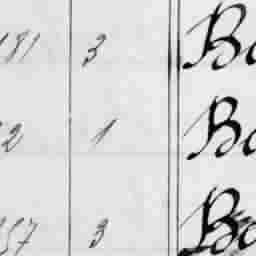 181 3 Ba
2 1 Ba
357 3 Ba